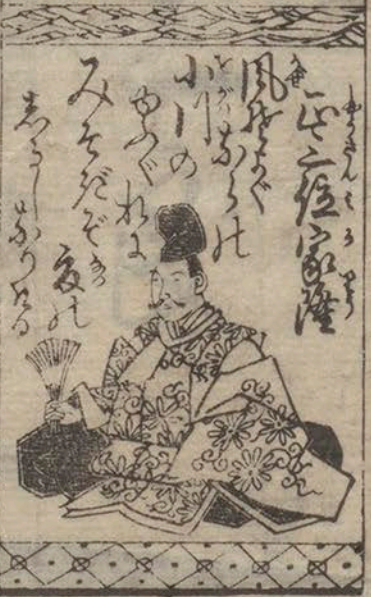 正三位家隆
風そよぐ
ならの
小川の
ゆふぐれは
みそぎぞ夏の
しるしなりける